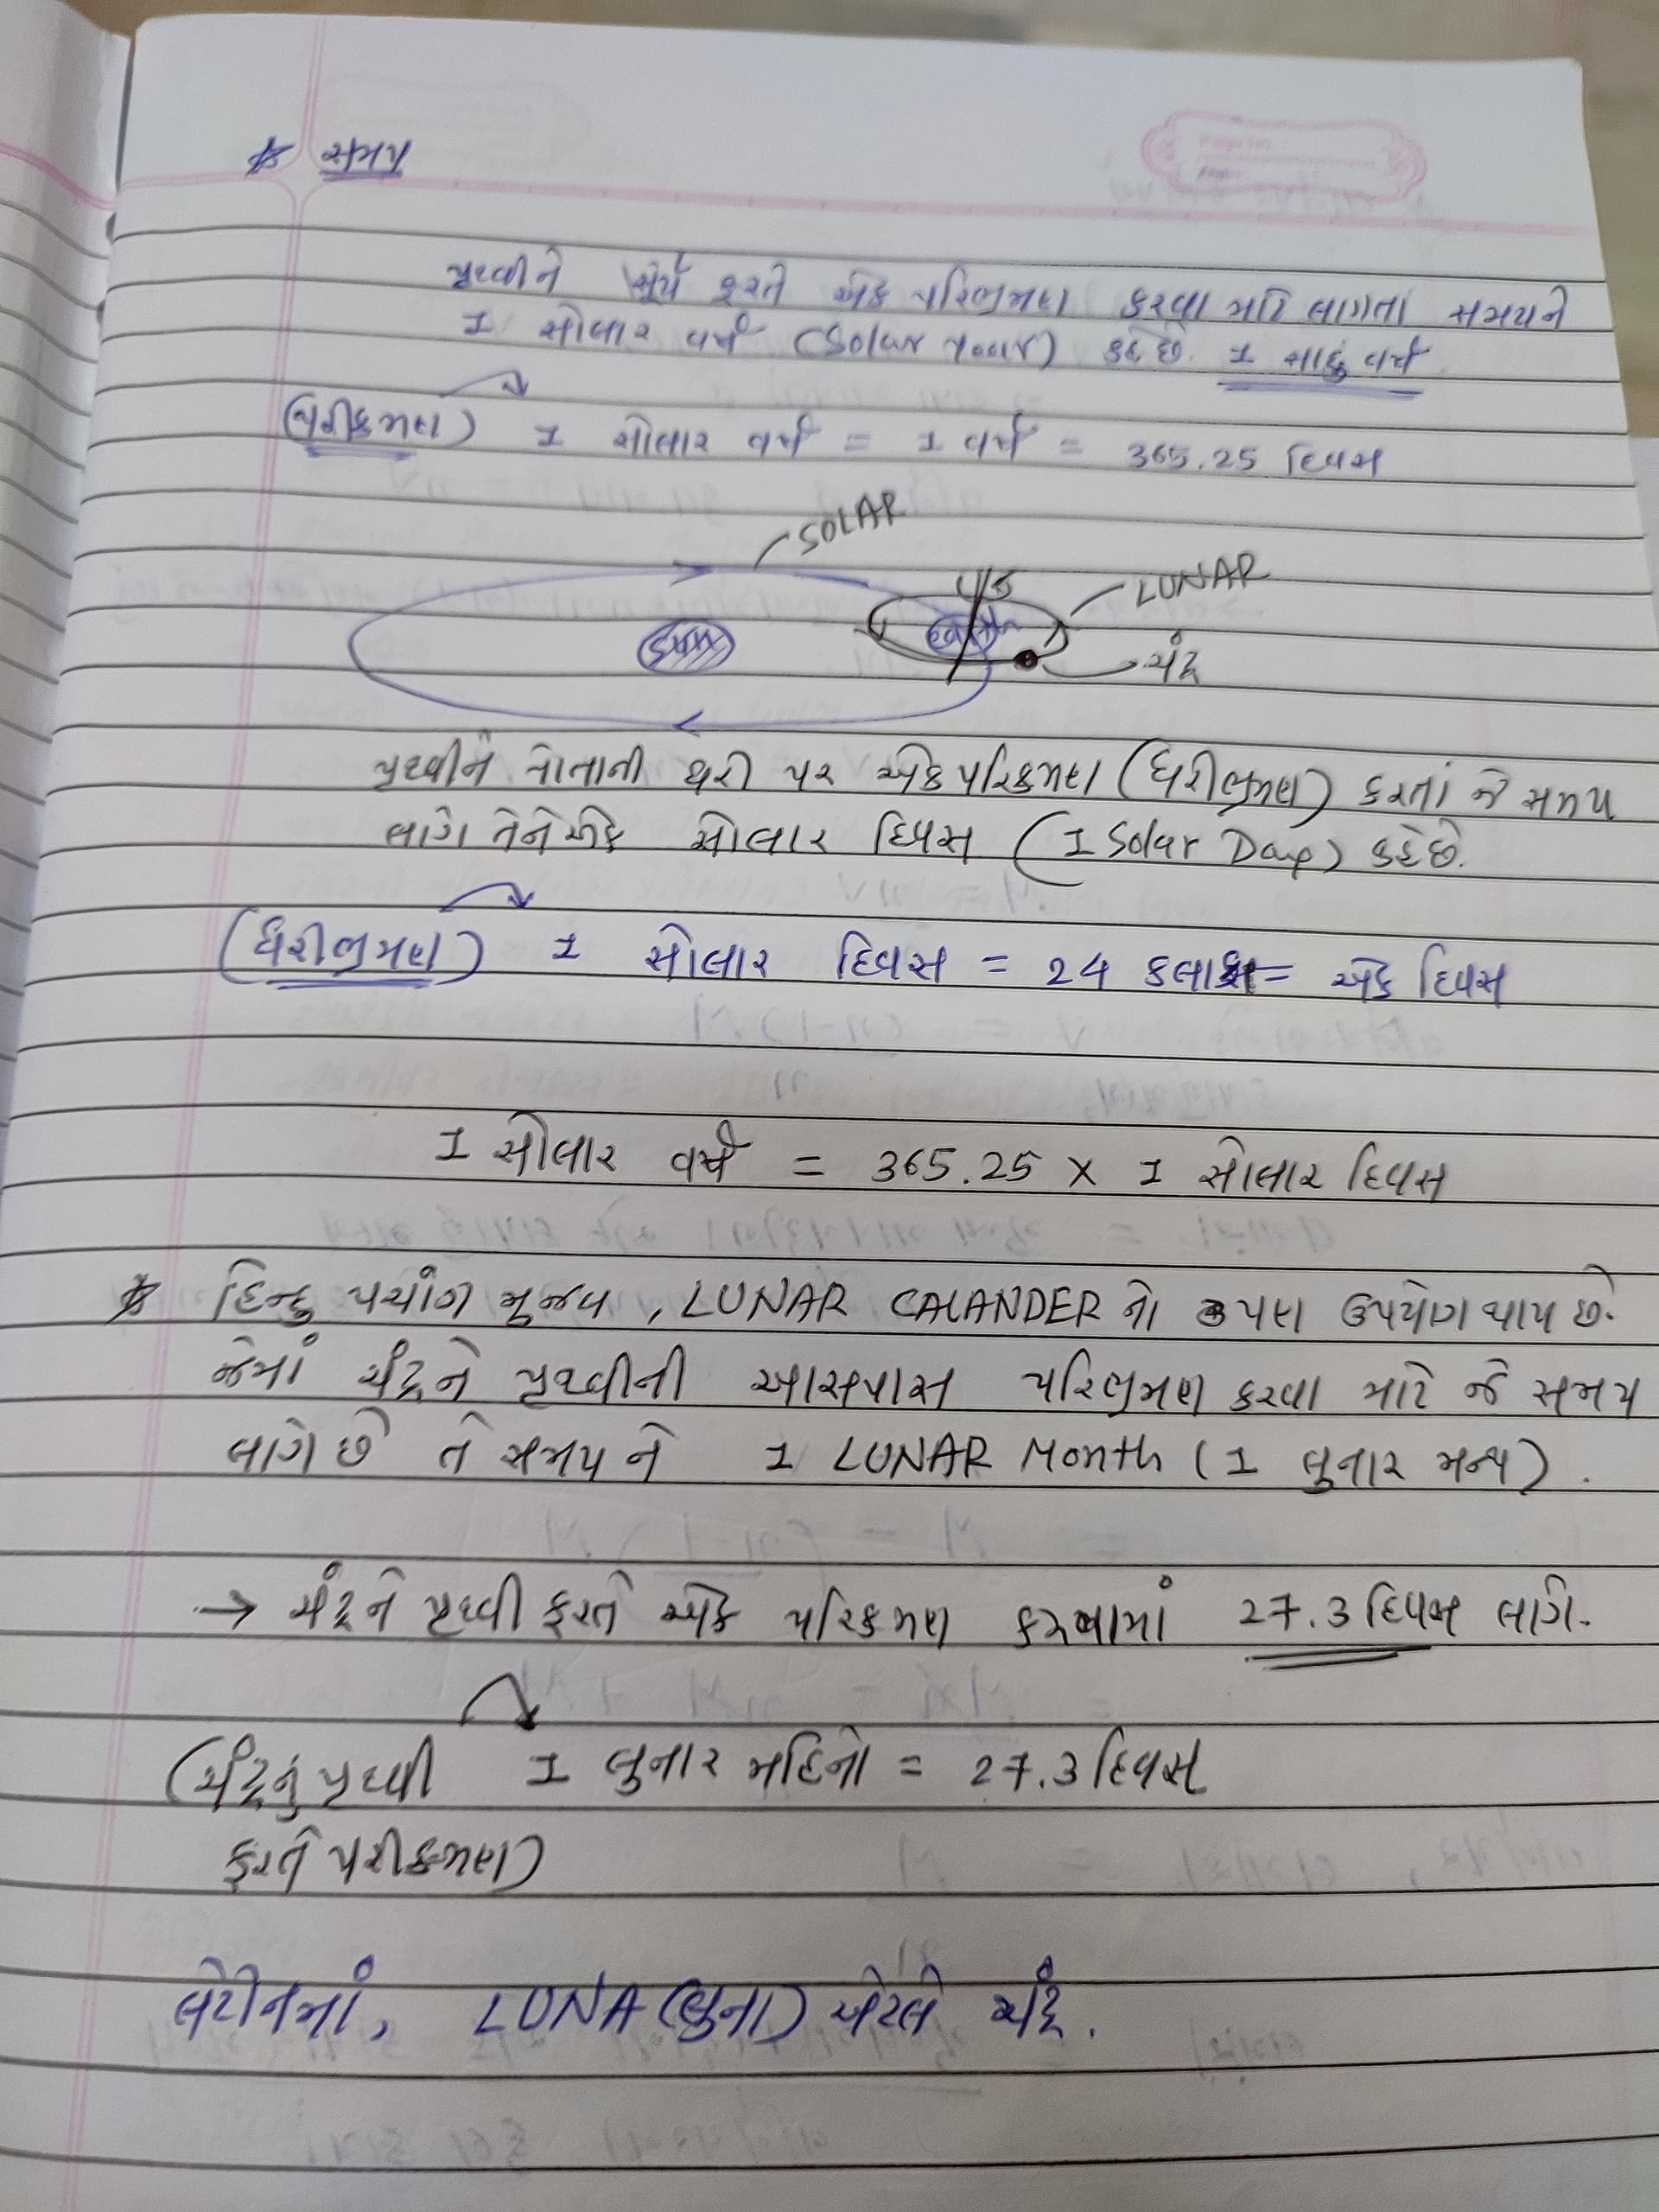 * સમય
પૃથ્વીને સૂર્ય ફરતે એક પરિભ્રમણ કરવા માટે લાગતા સમયને
1 સોલાર વર્ષ (Solar Year) કહે છે. 1 સાદું વર્ષ
(પરીક્રમણ) 1 સોલાર વર્ષ = 1 વર્ષ = 365.25 દિવસ
SOLAR
LUNAR
ચંદ્ર
પૃથ્વીને પોતાની ધરી પર એક પરિક્રમણ (ધરીભ્રમણ) કરતાં જે સમય
લાગે તેને એક સોલાર દિવસ (1 Solar Day) કહે છે.
(ધરીભ્રમણ) 1 સોલાર દિવસ = 24 કલાક = એક દિવસ
1 સોલાર વર્ષ = 365.25 x 1 સોલાર દિવસ
* હિન્દુ પચાંગ મૂજબ, LUNAR CALANDER નો પણ ઉપયોગ થાય છે.
જેમાં ચંદ્રને પૃથ્વીની આસપાસ પરિભ્રમણ કરવા માટે જે સમય
લાગે છે તે સમય ને 1 LUNAR Month (1 લુનાર મન્થ).
→ ચંદ્રને પૃથ્વી ફરતે એક પરિક્રમણ કરવામાં 27.3 દિવસ લાગે.
(ચંદ્રનું પૃથ્વી 1 લુનાર મહિનો = 27.3 દિવસ
ફરતે પરીક્રમણ)
લેટીનમાં, LUNA (લુના) એટલે ચંદ્ર.